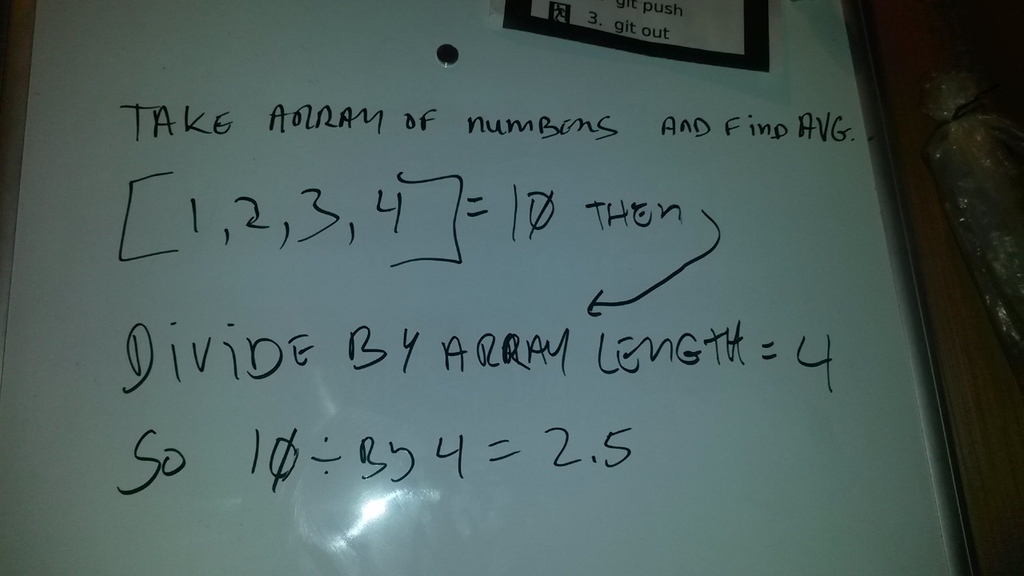 git push
3. git out
TAKE ARRAY OF numBERS AND FinD AVG.
[1,2,3,4]=10 THEn
DiViDE BY ARRAY LENGTH = 4
So 10 ÷ By 4 = 2.5